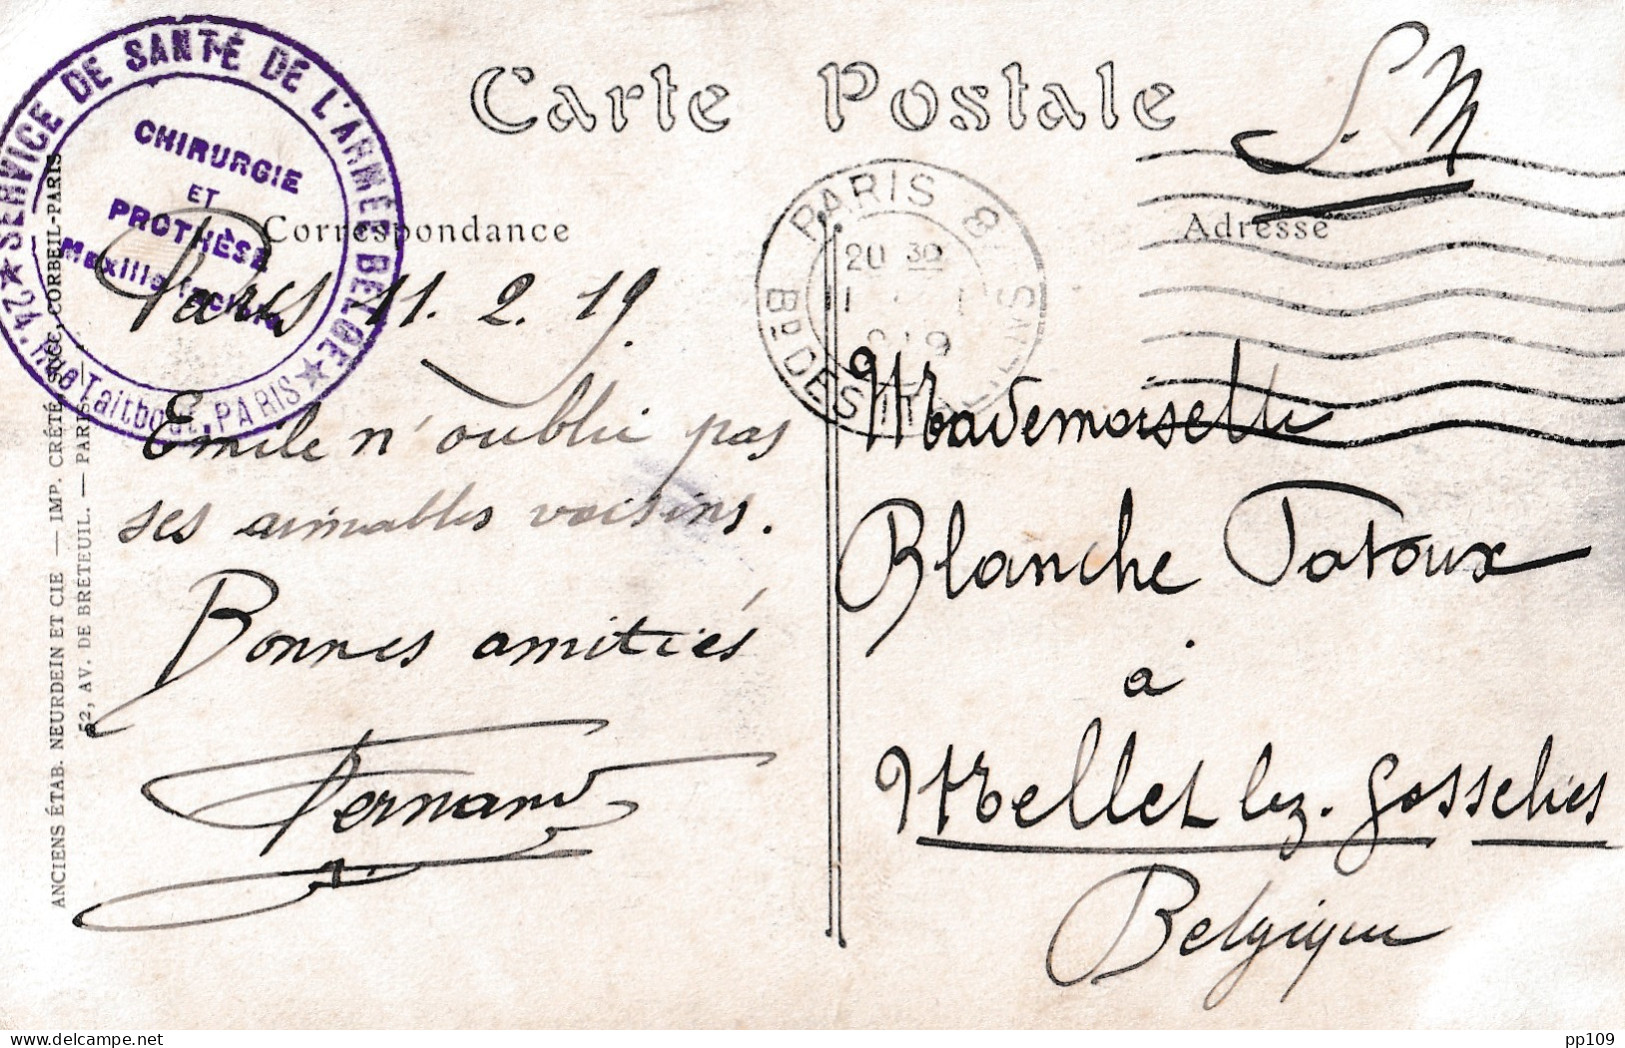 Carte Postale
S.M
★ SERVICE DE SANTÉ DE L'ARMÉE BELGE ★
24, Rue Taitbout, PARIS
CHIRURGIE
ET
PROTHÈSE
Correspondance
Adresse
PARIS 8
Bd DES
20 30
Paris 11.2.19
Emile n'oublie pas
ses aimables voisins.
Bonnes amitiés
Fernand
Mademoiselle
Blanche Tatoux
à
Mellet lez-Gosselies
Belgique
ANCIENS ÉTAB. NEURDEIN ET CIE — IMP. CRÉTÉ, SUCC. CORBEIL-PARIS
52, AV. DE BRETEUIL. — PARIS
pp109